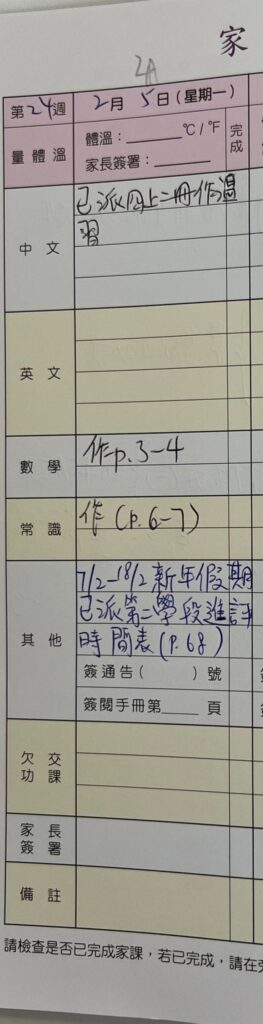 家
2A
第24週
2月5日(星期一)
量體溫
體溫：______°C/°F
家長簽署：______
完成
中文
已派四上二冊作溫
習
英文
數學
作p.3-4
常識
作(p.6-7)
其他
7/2-18/2新年假期
已派第二學段進評
時間表(P.68)
簽通告( )號
簽閱手冊第____頁
欠交
功課
家長
簽署
備註
請檢查是否已完成家課，若已完成，請在